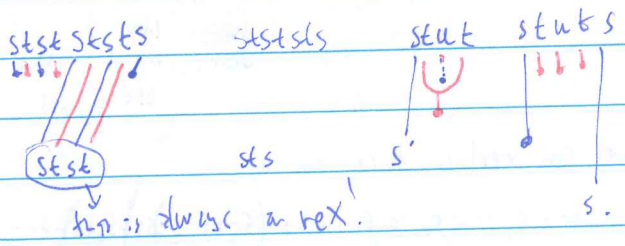 ststststs stststs stut stuts
stst sts s
this is always a rex!
s.